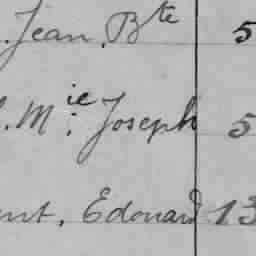 Jean Bte 5
Mie Joseph 5
ent, Edouard 13